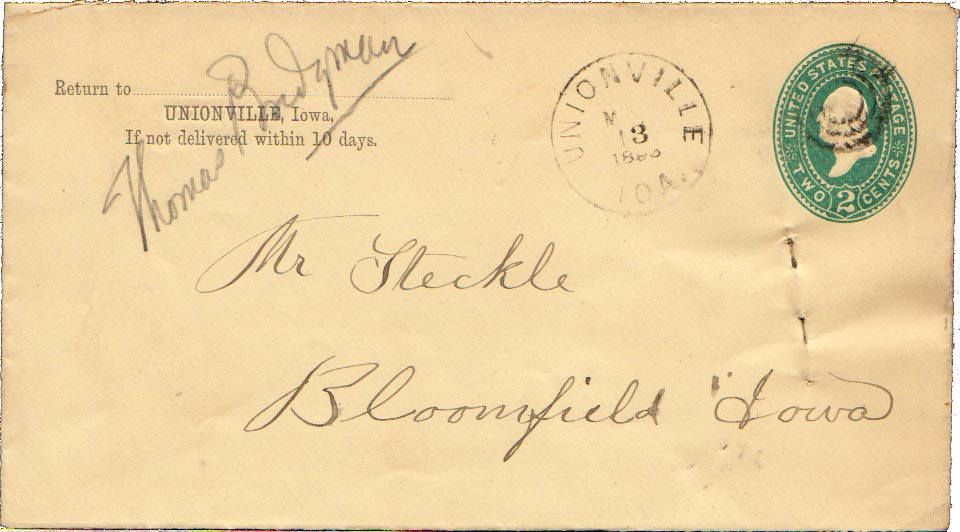 Thomas Bridgman
Return to
UNIONVILLE, Iowa,
If not delivered within 10 days.
UNIONVILLE
13
IOA.
UNITED STATES POSTAGE
TWO 2 CENTS.
Mr Steckle
Bloomfield Iowa